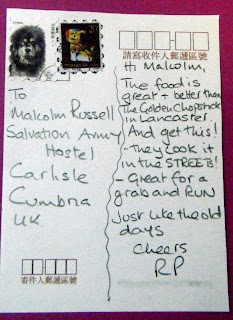 請寫收件人郵遞區號
Hi Malcolm,
The food is
great + better than
The Golden Chopstick
in Lancaster.
And get this!
- they cook it
in the STREETS!
- Great for a
grab and RUN
Just like the old
days
Cheers
RP
To
Malcolm Russell
Salvation Army
Hostel
Carlisle
Cumbria
UK.
寄件人郵遞區號